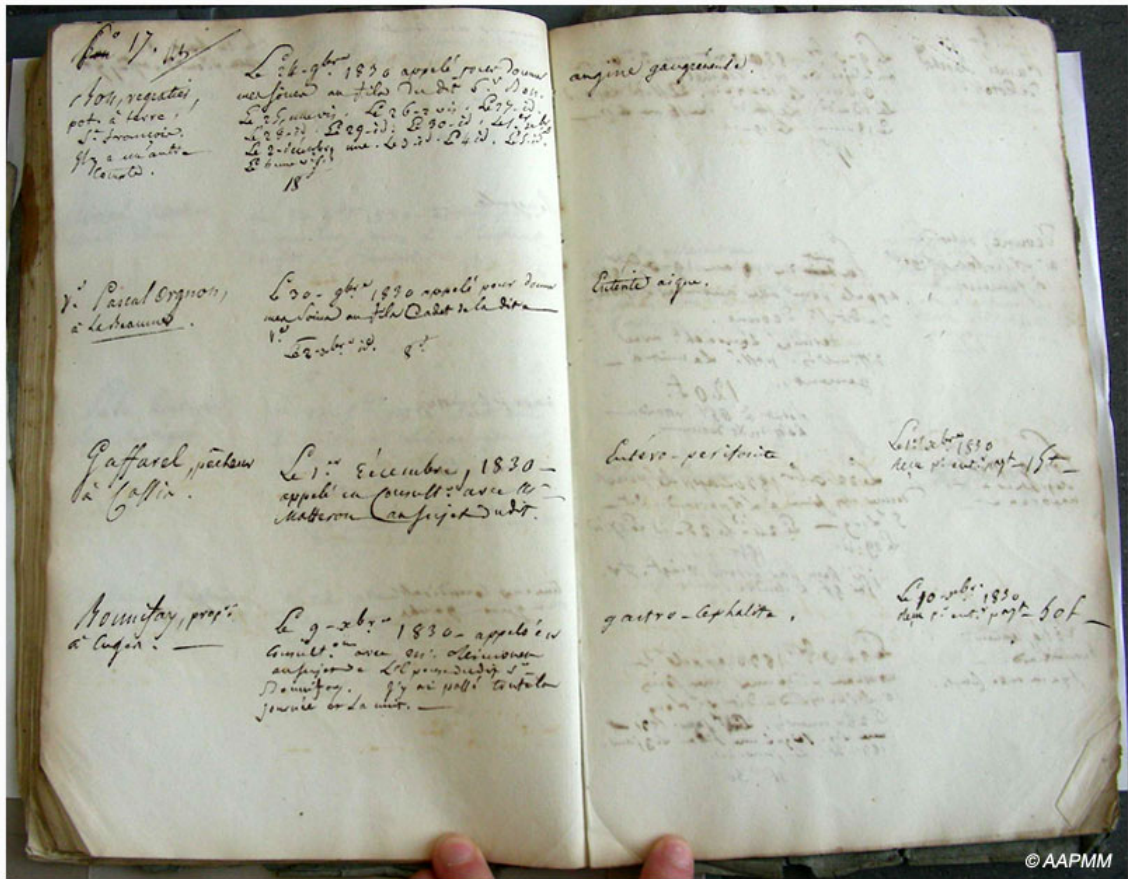 17.
Bon, regratier,
pot. à terre,
St. francois.
il y a un autre
compte.
Le 24-9bre 1830 appelé pour donner
mes soins au fils du dit Sr. Bon.
Le 25, une vis. Le 26-2 vis. Le 27-id.
Le 28-id. Le 29-id. Le 30-id. Le 1er xbre
Le 2-décembre une. Le 3-id. Le 4 id. Le 5-id.
Le 6 une vis.
18
angine gangréneuse.
Ve. Pascal Orgnon,
à Le Beausset.
Le 30-9bre 1830 appelé pour donner
mes soins au fils Cadet de la dite
Ve
Le 2-xbre id. 8
Entérite aigue.
Gaffarel, pêcheur
à Cassis.
Le 1er Décembre, 1830 -
appelé en Consult.on avec Mr
Matteron au sujet du dit.
Entéro-peritonite
Le 1er xbre 1830
reçu pr. ent. payt - 15f -
Bonnifay, propre
à Cuges. -
Le 9-xbre 1830 - appelé en
Consult.on avec mr.
au sujet de L'Epouse du dit Sr
Bonnifay. j'y ai passé toute la
journée et La nuit. -
gastro-Cephalite.
Le 10-xbre 1830
reçu pr. ent. payt - 50f -
© AAPMM